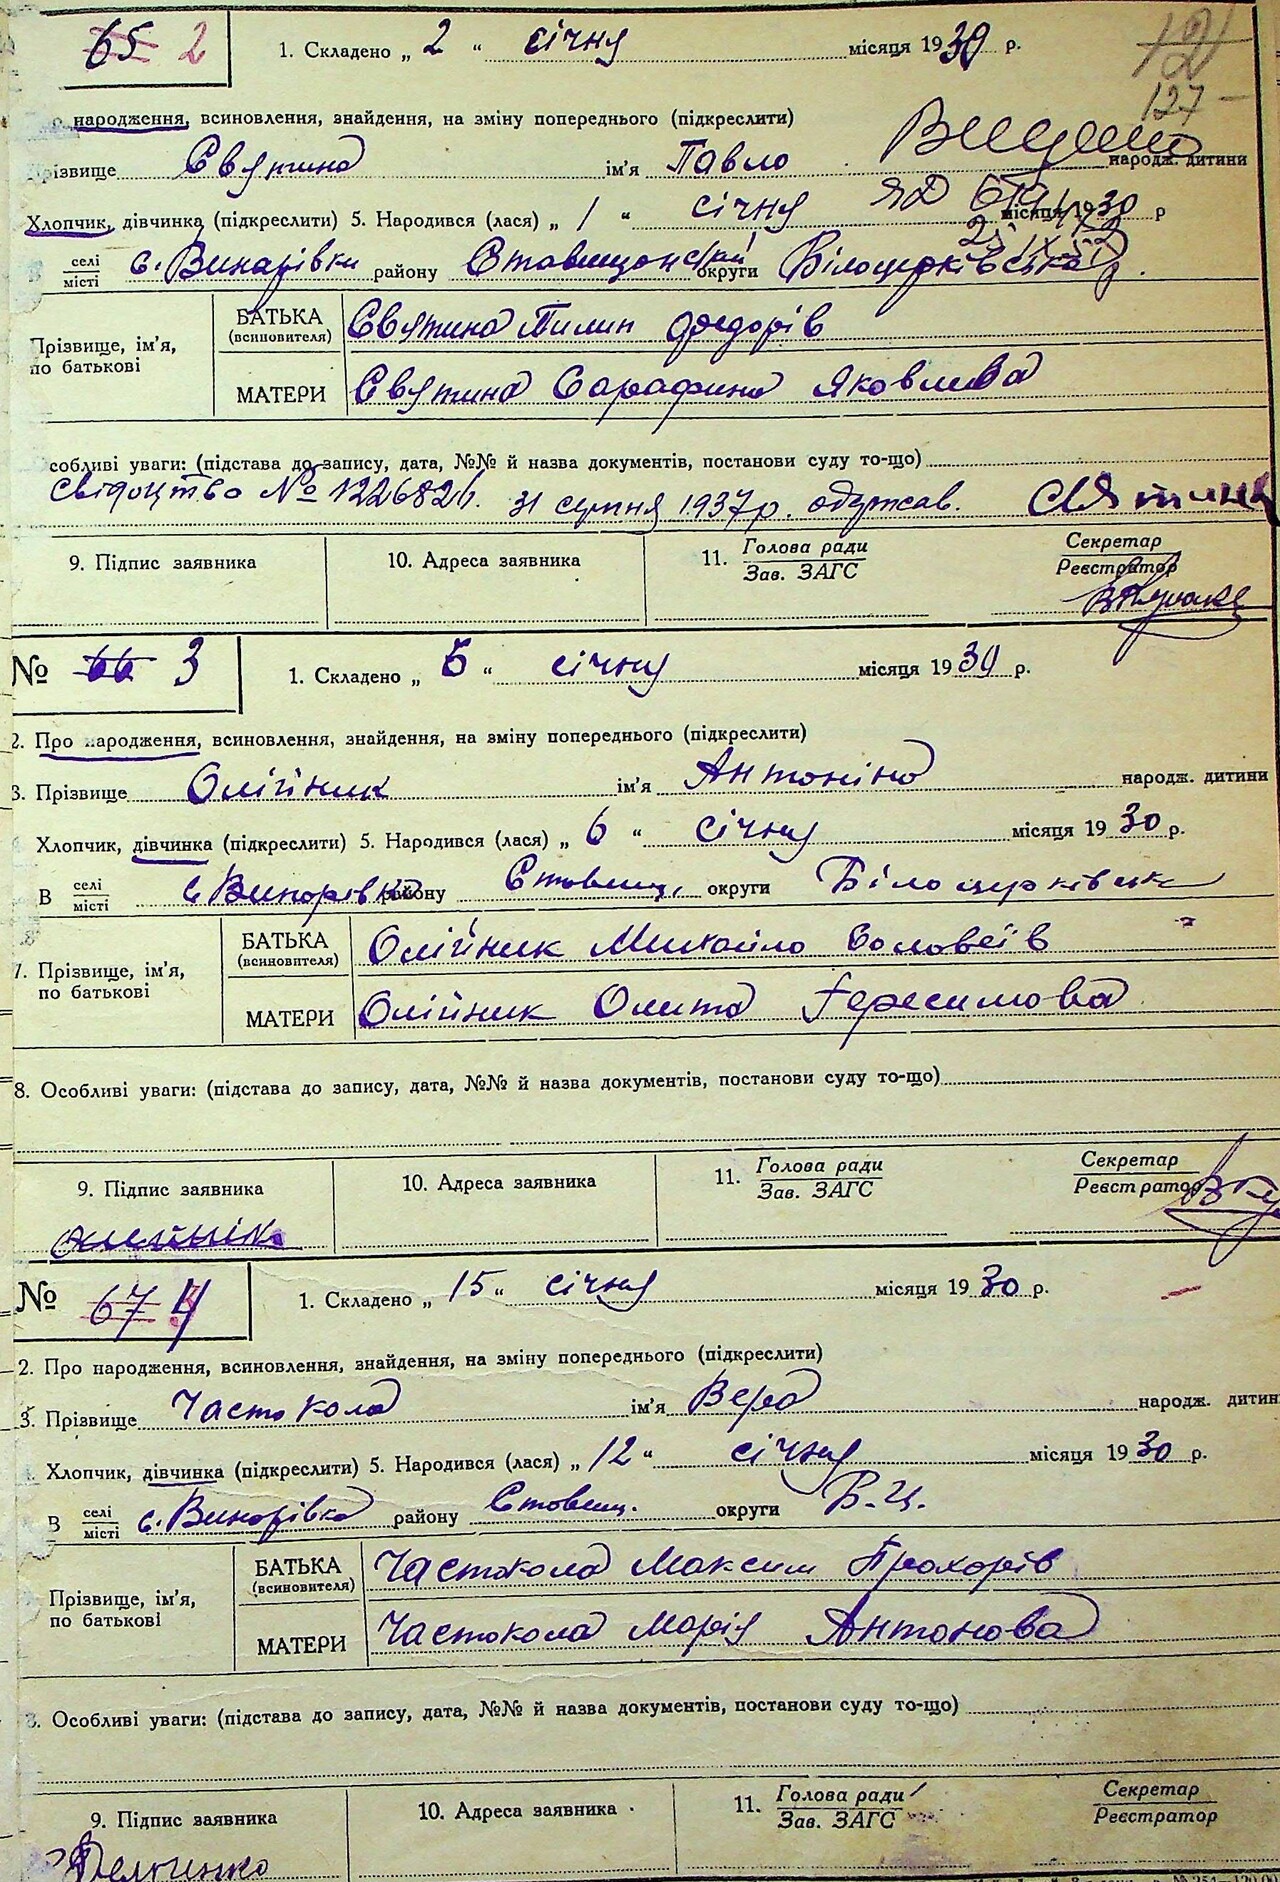 65 2
1. Складено „ 2 “ січня місяця 1930 р.
127
народження, всиновлення, знайдення, на зміну попереднього (підкреслити)
Прізвище Святина ім’я Павло народж. дитини
Видано
Хлопчик, дівчинка (підкреслити) 5. Народився (лася) „ 1 “ січня місяця 1930 р
В селі місті с. Винарівки району Ставищанський округи Білоцерківська
Прізвище, ім’я, по батькові
БАТЬКА (всиновителя) Святина Пилип Федорів
МАТЕРИ Святина Сарафина Яковлева
собливі уваги: (підстава до запису, дата, №№ й назва документів, постанови суду то-що)
Свідоцтво № 1226826. 31 серпня 1937 р. одержав.
9. Підпис заявника
10. Адреса заявника
11. Голова ради Зав. ЗАГС
Секретар Реєстратор
№ 66 3
1. Складено „ 6 “ січня місяця 1930 р.
2. Про народження, всиновлення, знайдення, на зміну попереднього (підкреслити)
3. Прізвище Олійник ім’я Антоніна народж. дитини
Хлопчик, дівчинка (підкреслити) 5. Народився (лася) „ 6 “ січня місяця 1930 р.
В селі місті с. Винарівка району Ставищ. округи Білоцерківськ
7. Прізвище, ім’я, по батькові
БАТЬКА (всиновителя) Олійник Михайло Соловеїв
МАТЕРИ Олійник Олита Герасимова
8. Особливі уваги: (підстава до запису, дата, №№ й назва документів, постанови суду то-що)
9. Підпис заявника
10. Адреса заявника
11. Голова ради Зав. ЗАГС
Секретар Реєстратор
№ 67 4
1. Складено „ 15 “ січня місяця 1930 р.
2. Про народження, всиновлення, знайдення, на зміну попереднього (підкреслити)
3. Прізвище Частокола ім’я Вера народж. дитин
Хлопчик, дівчинка (підкреслити) 5. Народився (лася) „ 12 “ січня місяця 1930 р.
В селі місті с. Винарівка району Ставищ. округи Б.-Ц.
Прізвище, ім’я, по батькові
БАТЬКА (всиновителя) Частокола Максим Прохорів
МАТЕРИ Частокола Марія Антонова
8. Особливі уваги: (підстава до запису, дата, №№ й назва документів, постанови суду то-що)
9. Підпис заявника
10. Адреса заявника
11. Голова ради Зав. ЗАГС
Секретар Реєстратор